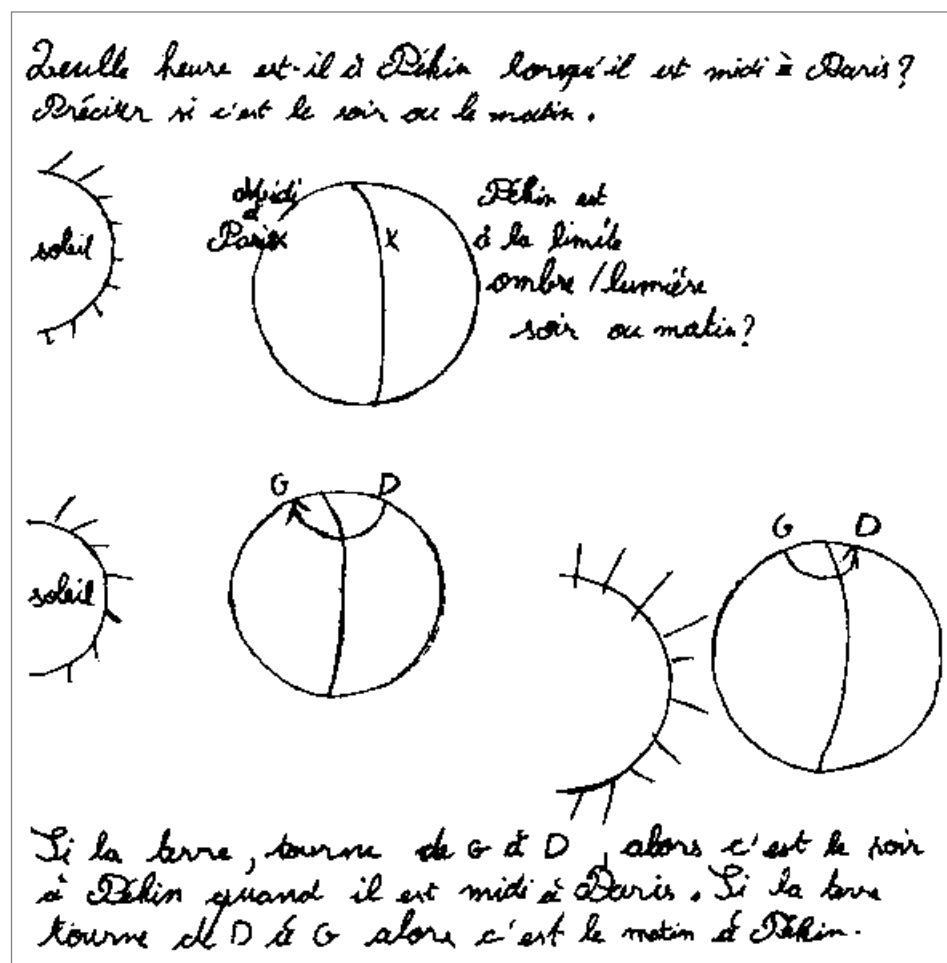 Qeulle heure est-il à Pékin lorsqu'il est midi à Paris?
Préciser si c'est le soir ou le matin.
Midi
à
Paris
x
x
soleil
Pékin est
à la limite
ombre / lumière
soir ou matin?
G D
soleil
G D
Si la terre, tourne de G à D, alors c'est le soir
à Pékin quand il est midi à Paris. Si la terre
tourne de D à G alors c'est le matin à Pékin.